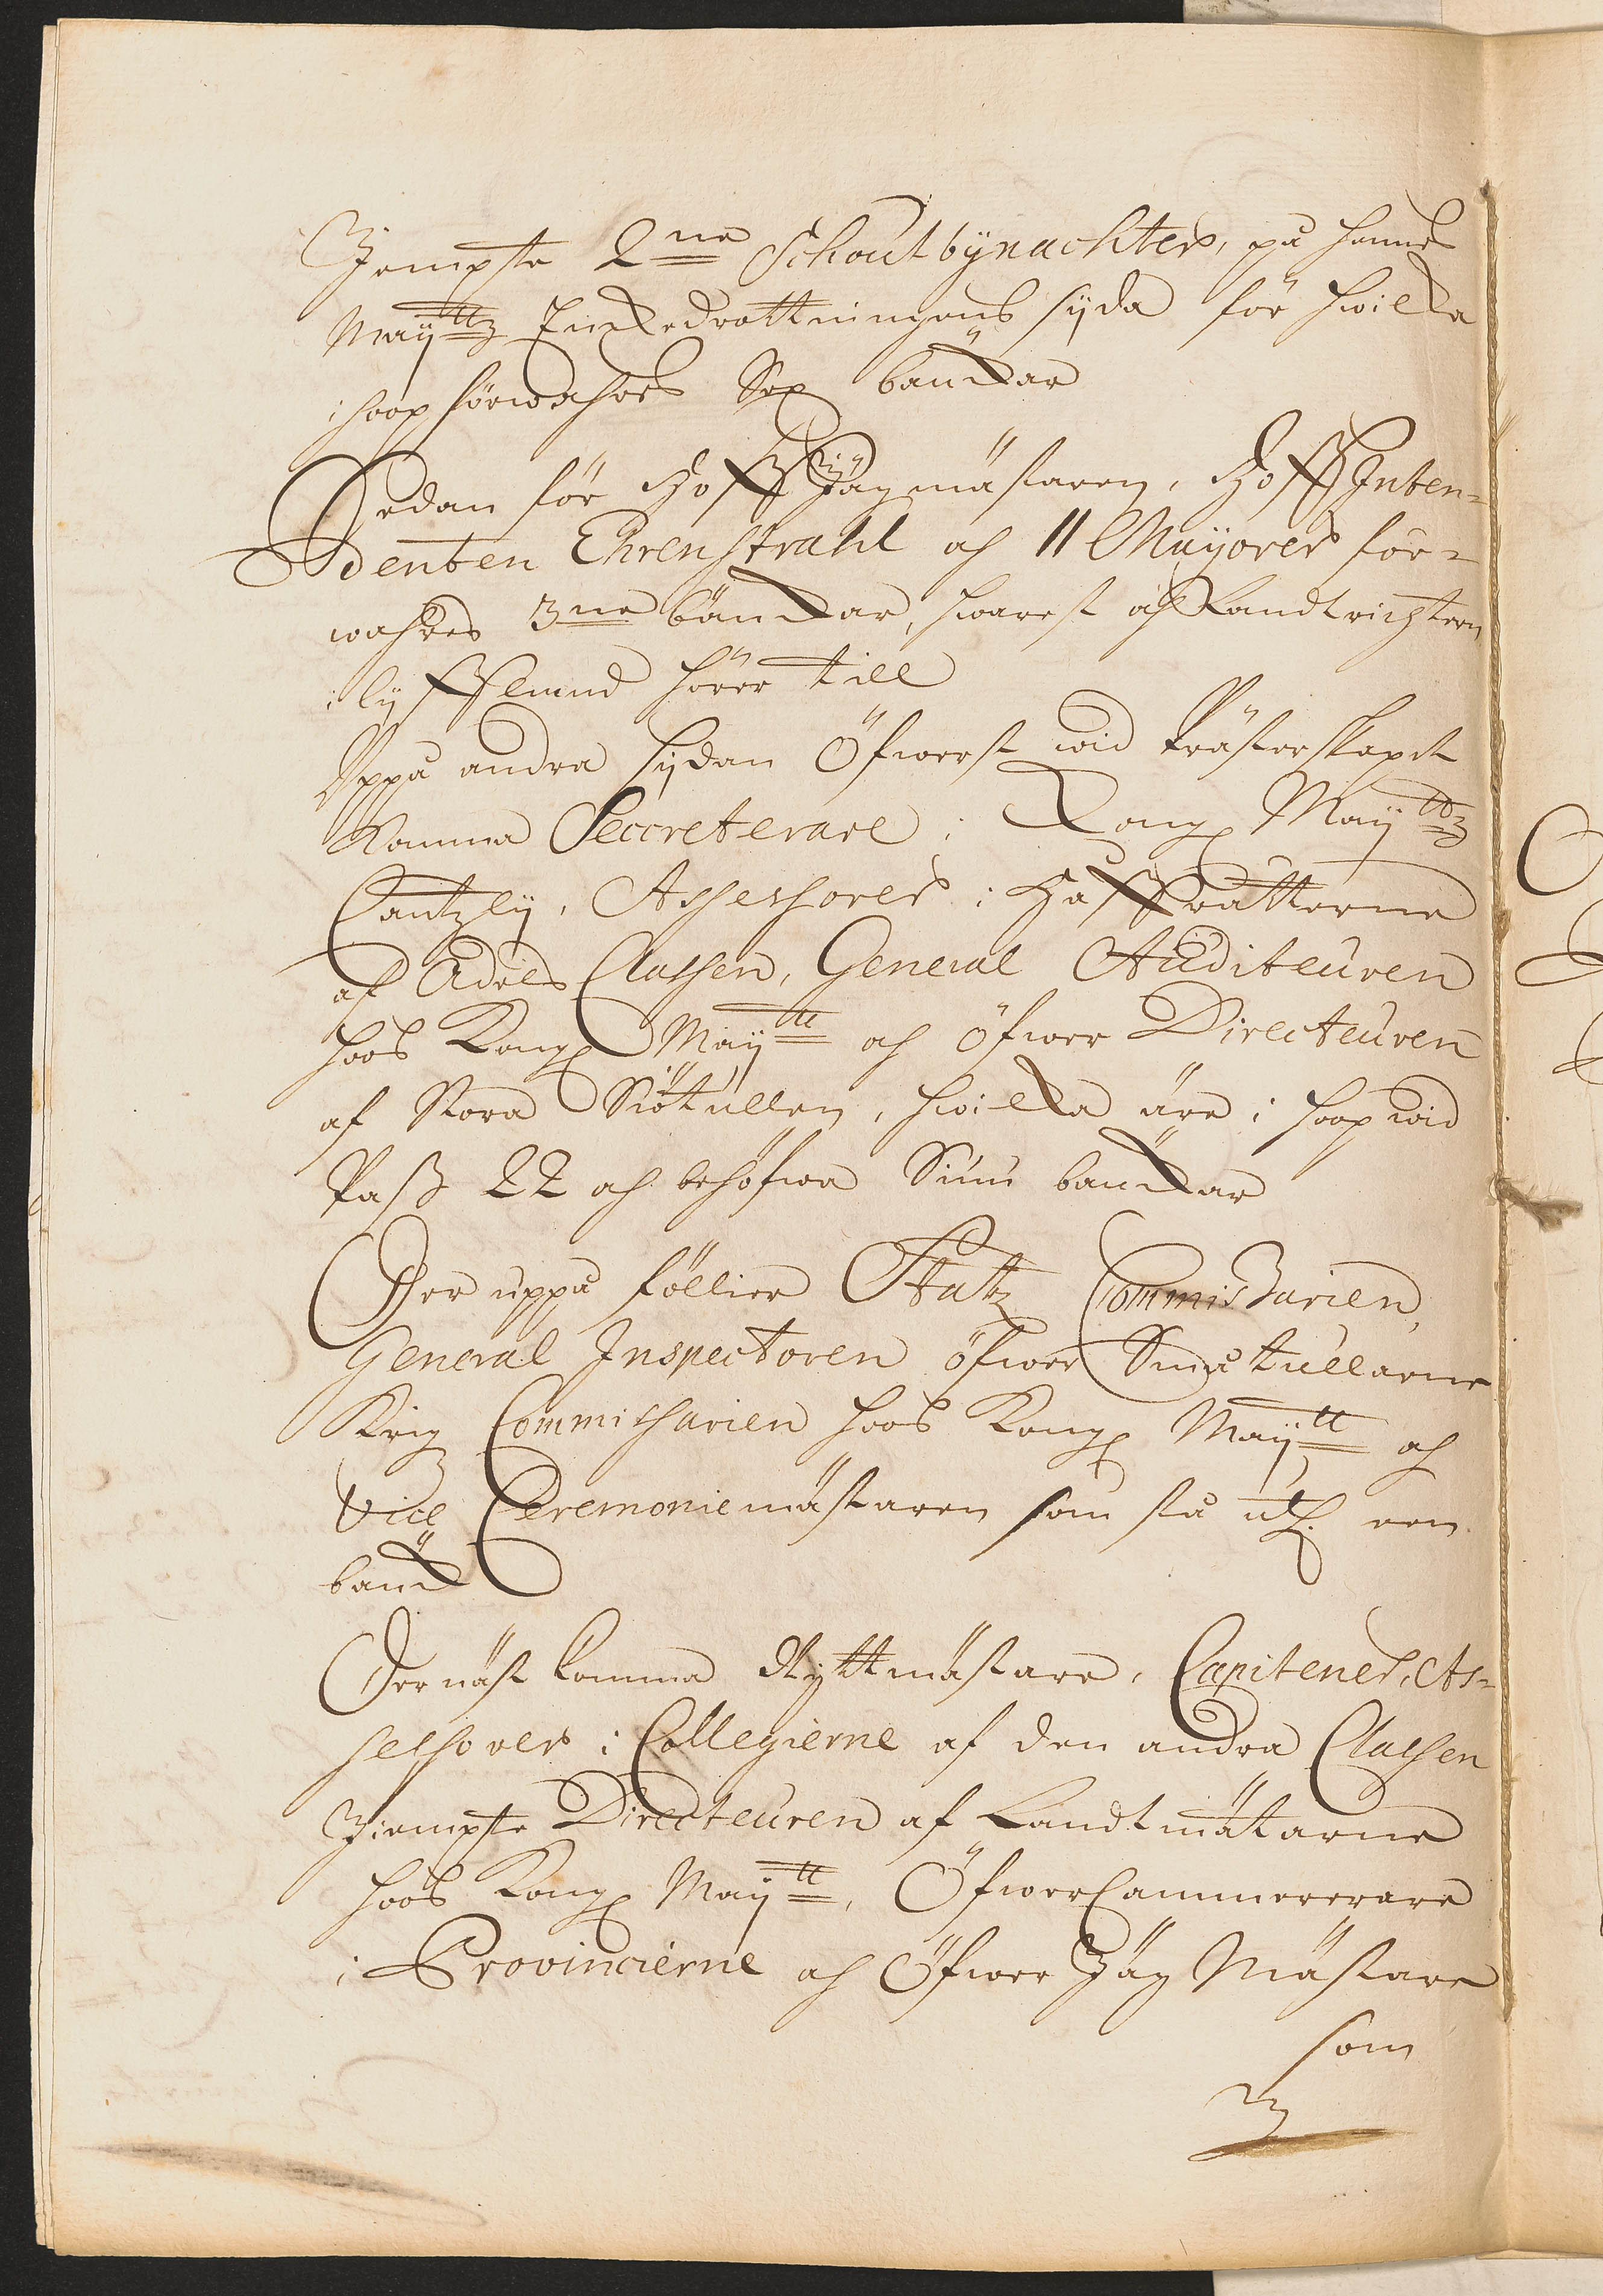 Jempte 2ne Schoutbynachter, på hennes
Maytz Enckedrottningens sijda för hwilka
ihoop förwahres Sex bänckar
Sedan för HoffJägmästaren, HoffInten-
denten Ehrenstrahl och 11 Mayorer för-
wahres 3ne bänckar, hwarest och Landtrichtern
i Lyffland hörer till
Uppå andra sijdan Öfwerst wid Prästerskapet
komma Seccreterare i Kongl Maytz
Cantzly, Assessorer i HåffRätterne
af Adels Classen, General Auditeuren
hoos Kongl Maytt och öfwer Directeuren
af Stora Siötullen, hwilka äre i hoop wid
Pass 22 och behöfwa Siuu bänckar
Der uppå föllier Statz Commissarien,
General Inspectoren öfwer Småtullarne
Krigz Commissarien hoos Kongl Maytt och
Vice Ceremoniemästaren som stå uthi een
bänck
Der näst komma Ryttmästare, Capitener, As-
sessorer i Collegierne af den andra Classen
Jiempte Directeuren af Landtmätarne
hoos Kongl Maytt, ÖfwerCammererare
i Provincierne och Öfwer Jäg Mästare
som